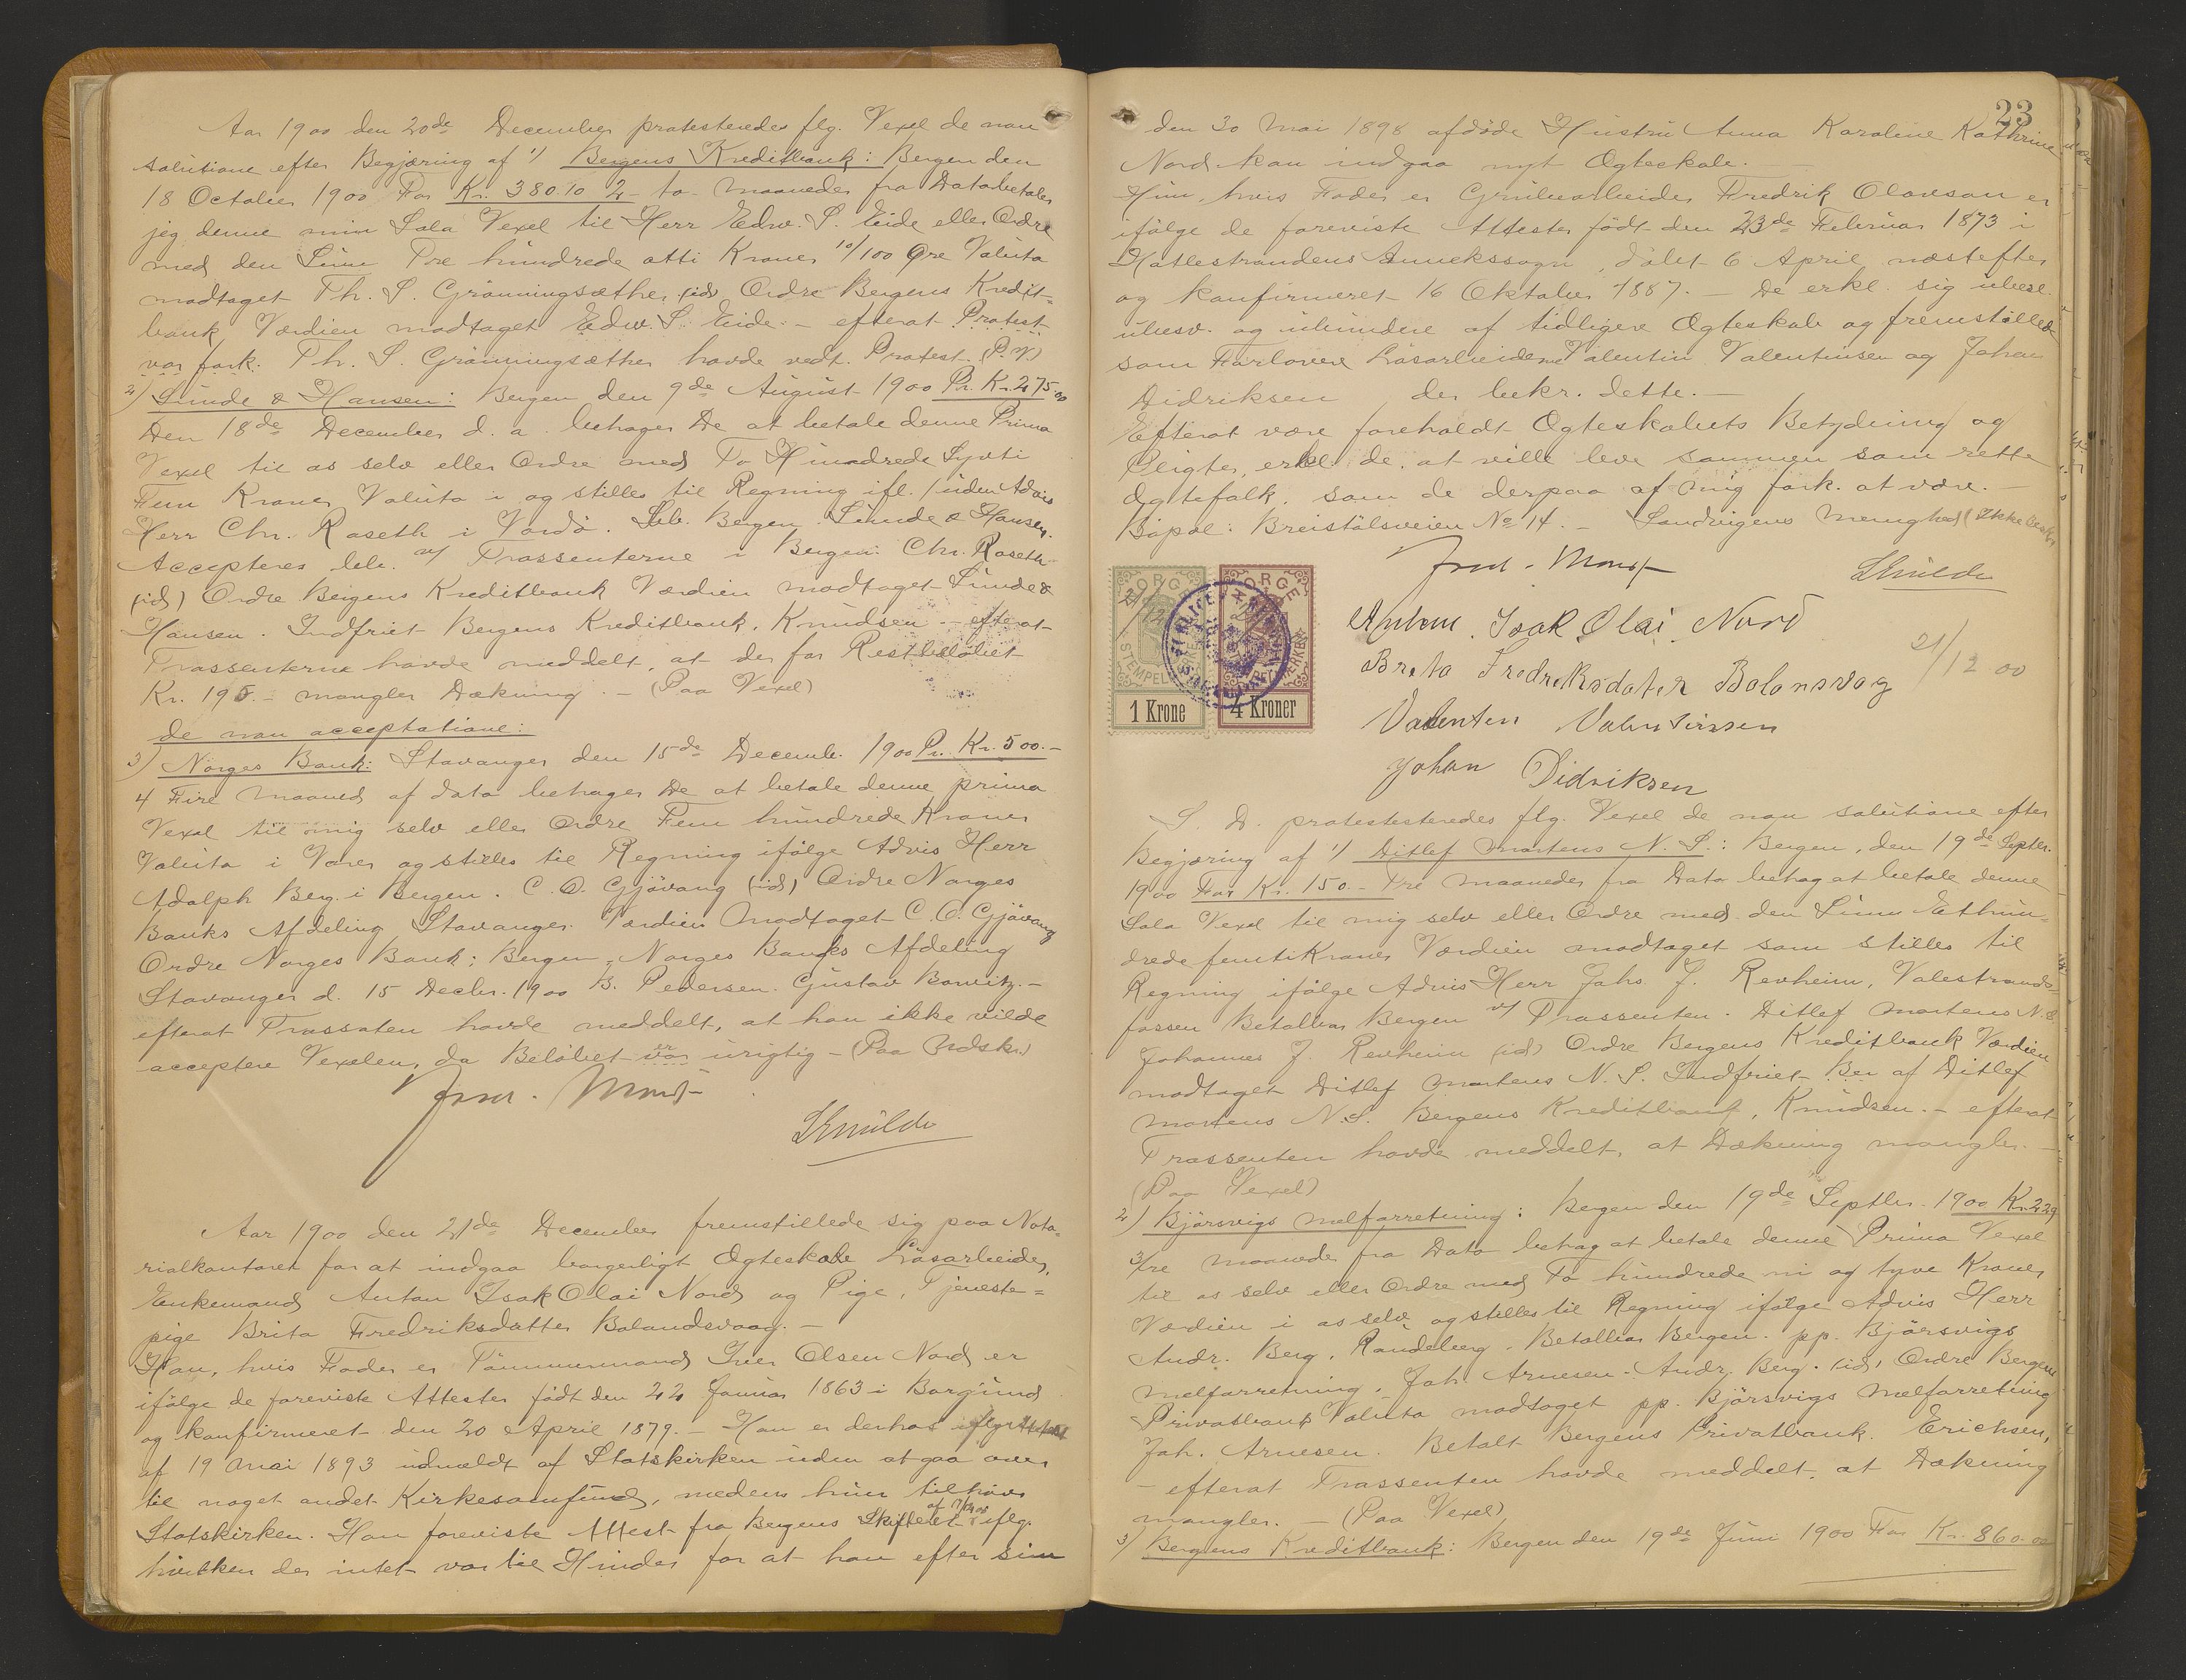 Aar 1900 den 20de December protesteredes flg. Vexel de non
solutione efter Begjæring af 1) Bergens Kreditbank: Bergen den
18 October 1900 For Kr. 380 10 2 - to - maaneder fra Data betaler
jeg denne min Sola Vexel til Herr Edw. S. Eide eller Ordre
med den Sum Tre hundrede otti Kroner 10/100 Øre Valuta
modtaget Th. S. Grønningsæther (id) Ordre Bergens Kredit-
bank Værdien modtaget Edw. S. Eide. - efterat Protest
var fork. Th. S. Grønningsæther havde vedt. Protest (P. V.)
2) Lunde & Hansen: Bergen den 9de August 1900 Pr. Kr. 275.00
Den 18de December d. a. behager De at betale denne Prima
Vexel til os selv eller Ordre med To Hundrede Syvti
Fem Kroner Valuta i og stilles til Regning ifl. / uden Advis
Herr Chr. Raseth i Vardø. Beb. Bergen. Lunde & Hansen.
Accepteres beb. v/ Trassenterne i Bergen: Chr. Raseth
(id) Ordre Bergens Kreditbank Værdien modtaget Lunde &
Hansen. Indfriet Bergens Kreditbank. Knudsen. - efterat
Trassenterne havde meddelt, at der for Restbeløbet
Kr. 195.- mangler Dækning. - (Paa Vexel)
de non acceptatione:
3) Norges Bank: Stavanger den 15de Decemb. 1900 Pr. Kr. 500.-
4 Fire maaned af dato behager De at betale denne prima
Vexel til mig selv eller Ordre Fem hundrede Kroner
Valuta i Varer og stilles til Regning ifølge Advis Herr
Adolph Berg i Bergen. C. O. Gjøvaag (id) Ordre Norges
Banks Afdeling Stavanger. Værdien modtaget C. O. Gjøvaag
Ordre Norges Bank; Bergen, Norges Banks Afdeling
Stavanger d. 15 Decbr. 1900 B. Pedersen. Gustav Bowitz. -
efterat Trassaten havde meddelt, at han ikke vilde
acceptere Vexelen, da Beløbet var er urigtig - (Paa Udskr.)
Skulde
Aar 1900 den 21de December fremstillede sig paa Nota-
rialkontoret for at indgaa borgerligt Ægteskab Løsarbeider,
Enkemand Anton Isak Olai Nord og Pige, Tjeneste-
pige Brita Fredriksdatter Bolandsvaag. -
Han, hvis Fader er Tømmermand Iver Olsen Nord er
ifølge de foreviste Attester født den 22 Januar 1863 i Borgund
og konfirmeret den 20 April 1879. - Han er derhos iflg. Attest
af 19 Mai 1893 udmeldt af Statskirken uden at gaa over
til noget andet Kirkesamfund, medens hun tilhører
Statskirken. Han foreviste Attest fra Bergens Skifteret iflg.
hvilken der intet var til Hinder for at han efter sin
23
den 30 Mai 1898 afdøde Hustru Anna Karoline Kathrine
Nord kan indgaa nyt Ægteskab. -
Hun, hvis Fader er Grubearbeider Fredrik Olavson er
ifølge de foreviste Attester født den 23de Februar 1873 i
Hatlestrandens Annekssogn, døbt 6 April næstefter
og konfirmeret 16 Oktober 1887. - De erkl. sig ubesl.
ubesv. og uhindere af tidligere Ægteskab og fremstillede
som Forlovere Løsarbeiderne Valentin Valentinsen og Johan
Didriksen der bekr. dette. -
Efterat være foreholdt Ægteskabets Betydning og
Pligter, erkl. de at ville leve sammen som rette
Ægtefolk, som de derpaa af mig fork. at være. -
Bopæl: Breistølsveien No 14. - Sandvigens Menighed (Ikke besk.)
Skulde
NORGE
STEMPELMERKE
1 Krone
NORGE
STEMPELMERKE
4 Kroner
Anton Isak Olai Nord
21/12 00
Breta Fredreksdater Bolonsvog
Valenten Valentinsen
Johan Didriksen
S. D. protestesteredes flg. Vexel de non solutione efter
Begjæring af 1) Ditlef Martens N. S.: Bergen, den 19de Septbr.
1900 For Kr. 150.- Tre maaneder fra Dato behag at betale denne
Sola Vexel til mig selv eller Ordre med den Sum Ethun-
drede femti Kroner Værdien modtaget som stilles til
Regning ifølge Advis Herr Johs. J. Revheim, Valestrands-
fossen Betalbar Bergen v/ Trassenten. Ditlef Martens N. S.
Johannes J. Revheim (id) Ordre Bergens Kreditbank Værdien
modtaget Ditlef Martens N. S. Indfriet Ber af Ditlef
Martens N. S. Bergens Kreditbank, Knudsen. - efterat
Trassenten havde meddelt, at Dækning mangler. -
(Paa Vexel)
2) Bjørsvigs melforretning: Bergen den 19de Septbr. 1900 Kr. 229
3/tre maaneder fra Dato behag at betale denne Prima Vexel
til os selv eller Ordre med To hundrede ni og tyve Kroner
Værdien i os selv og stilles til Regning ifølge Advis Herr
Andr. Berg, Randeberg. Betalbar Bergen. pp. Bjørsvigs
melforretning, Joh. Arnesen. Andr. Berg. (id) Ordre Bergens
Privatbank Valuta modtaget pp. Bjørsvigs Melforretning
Joh. Arnesen. Betalt Bergens Privatbank. Erichsen,
- efterat Trassenten havde meddelt, at Dækning
mangler. - (Paa Vexel)
3) Bergens Kreditbank: Bergen den 19de Juni 1900 For Kr. 860.00